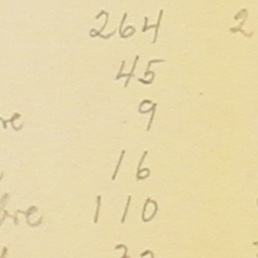 264 2
45
re 9
16
bre 110